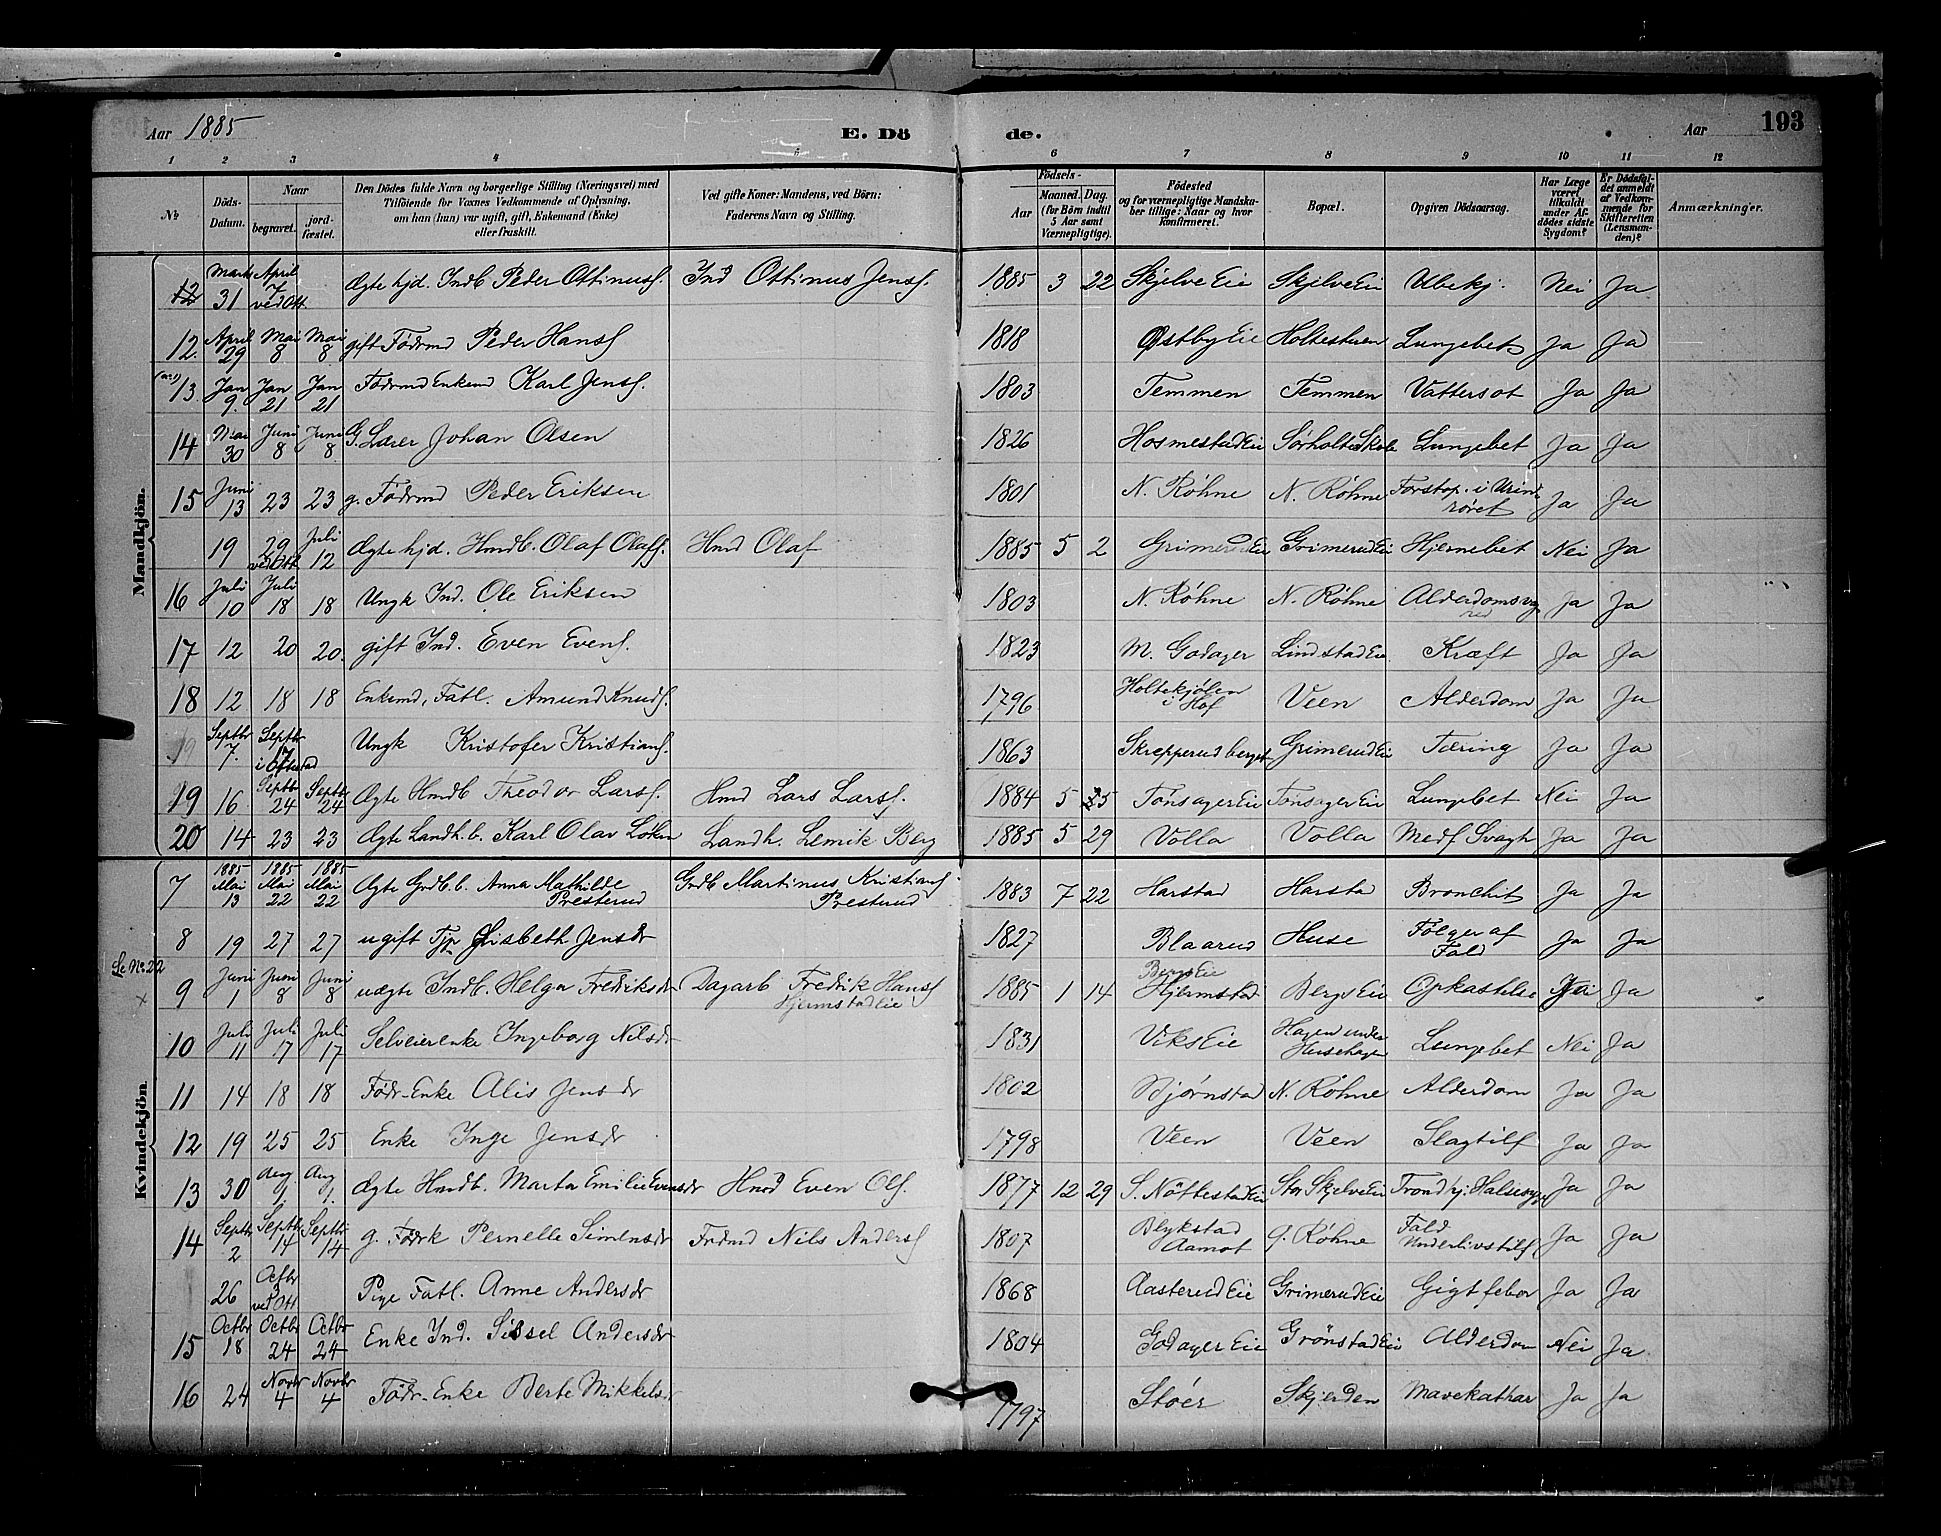 Aar 1885 E. Dö de. Aar 193
1 2 3 4 5 6 7 8 9 10 11 12
№
Döds-Datum.
Naar
begravet.
jordfæstet.
Den Dödes fulde Navn og borgerlige Stilling (Næringsvei) med
Tilföiende for Voxnes Vedkommende af Oplysning,
om han (hun) var ugift, gift, Enkemand (Enke)
eller fraskilt.
Ved gifte Koner: Mandens, ved Börn:
Faderens Navn og Stilling.
Födsels-
Aar
Maaned.
Dag.
(for Börn indtil
5 Aar samt
Værnepligtige).
Födested
og for værnepligtige Mandskaber tillige: Naar og hvor
Konfirmeret.
Bopæl.
Opgiven Dödsaarsag.
Har Læge
været
tilkaldt
under Afdödes sidste
Sygdom?
Er Dödsfaldet anmeldt
af Vedkommende for
Skifteretten
(Lensmanden)?
Anmærkninger.
Mandkjön.
12 Marts 31 April 7 ved Ott Ægte hjd. Indb Peder Ottinuss. Ind Ottinus Jenss. 1885 3 22 Skjelve Eie Skjelve Eie Ubekj. Nei Ja
12. April 29 Mai 8 Mai 8 gift Födrmd Peder Hanss 1818 Østby Eie Lungebet Ja Ja
13. Jan 9. Jan 21 Jan 21 Födrmd Enkemd Karl Jenss. 1803 Temmen Temmen Vattersot Ja Ja
14 Mai 30 Juni 8 Juni 8 G. Lærer Johan Olsen 1826 Hosmestad Eie Sörholte Skole Lungebet Ja Ja
15 Juni 13 23 23 g. Födrmd Peder Eriksen 1801 N. Röhne N. Röhne Forstop. i Urinröret Ja Ja
19 29 ved Ott Juli 12 Ægte hjd. Hmdb. Olaf Olafs. Hmd Olaf 1885 5 2 Grimerud Eie Grimerud Eie Hjernebet Nei Ja
16 Juli 10 Juli 18 18 Ungk Ind. Ole Eriksen 1803 N. Röhne N. Röhne Ja Ja
17 12 20 20. gift Ind. Even Evens. 1823 M. Godager Lindstad Eie Kræft Ja Ja
18 12 18 18 Enkemd, Fatl. Amund Knuds. 1796 Holtekjölen i Hof Veen Alderdom Ja Ja
19 Septbr 7. Septbr 17 Ungk Kristofer Kristians. 1863 Skrepperudberget Grimerud Eie Tæring Ja Ja
19 16 Septbr 24 Septbr 24 Ægte Hmdb Theodor Larss. Hmd Lars Larss. 1884 5 25 Tönsager Eie Tönsager Eie Lungebet Nei Ja
20 14 23 23 Ægte Landh. b. Karl Olav Löken Landh. Lemik Berg 1885 5 29 Volla Volla Medf Svagh Ja Ja
Kvindekjön.
7 1885 Mai 13 1885 Mai 22 1885 Mai 22 Ægte Grdb. b. Anna Mathilde Presterud Grdb Martinus Kristians Presterud 1883 7 22 Harstad Harstad Bronchit Ja Ja
8 19 27 27 ugift Tjp Lisbeth Jensdr 1827 Blaarud Huse Fölger af Fald Ja Ja
Se No 22
x
9 Juni 1 Juni 8 Juni 8 uægte Indb. Helga Fredriksdr Dagarb Fredrik Hanss Hjermstad Eie 1885 1 14 Bergs Eie Hjermstad Bergs Eie Opkastelse Nei Ja
10 Juli 11 Juli 17 Juli 17 Selveierenke Ingeborg Nilsdr 1831 Viks Eie Hagen under Husehagen Lungebet Nei Ja
11 14 18 18 Födr-Enke Alis Jensdr 1802 Bjørnstad N. Röhne Alderdom Ja Ja
12 19 25 25 Enke Inge Jensdr 1798 Veen Veen Slagtilf Ja Ja
13 30 Aug 1. Aug 1. Ægte Hmdb. Marta Emilie Evensdr Hmd Even Ols. 1877 12 29 S. Nöttestad Eie Stor Skjelve Eie Trondhj. Halsesyge Ja Ja
14 Septbr 2 Septbr 14 Septbr 14 g. Födrk Pernelle Simensdr Frdmd Nils Anderss 1807 Aamot Ö. Röhne Fald Underlivstilf Ja Ja
26 Octbr 3 ved Ott Pige Fatl. Anne Andersdr 1868 Aasterud Eie Grimerud Eie Gigtfeber Ja Ja
15 Octbr 18 Octbr 24 Octbr 24 Enke Ind. Sissel Andersdr 1804 Godager Eie Grönstad Eie Alderdom Nei Ja
16 24 Novbr 4 Novbr 4 Födr-Enke Berte Mikkelsdr 1797 Stöer Skjerden Mavekathar Ja Ja